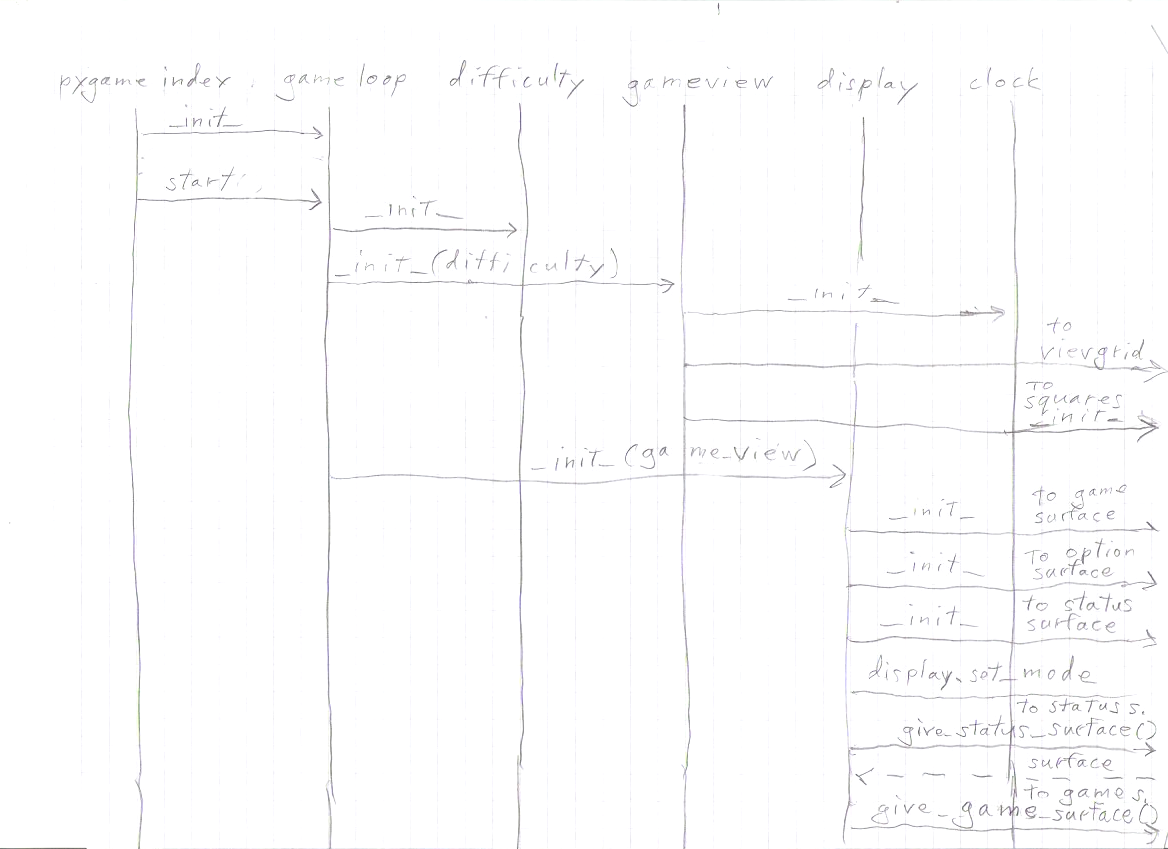 pygame index gameloop difficulty gameview display clock
_init_
start
_init_
_init_(difficulty)
_init_
to
vievgrid
To
squares
_init_
_init_(game_view)
_init_ to game
surface
_init_ To option
surface
_init_ to status
surface
display.set_mode
to status s.
give_status_surface()
surface
to game s.
give_game_surface()